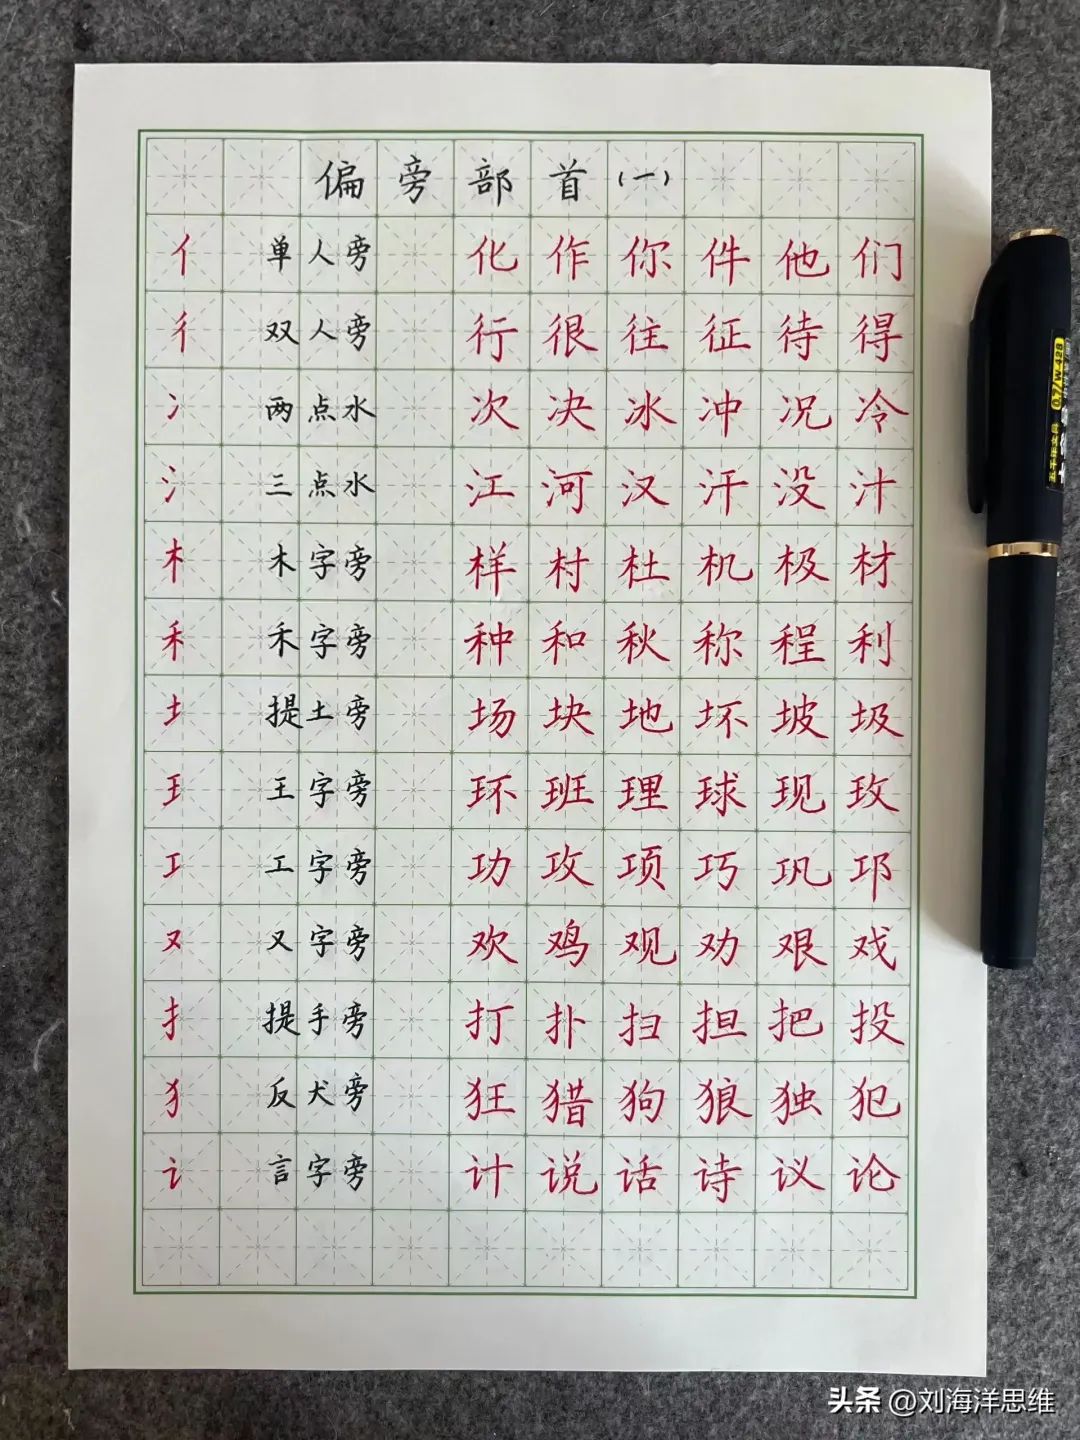 偏旁部首(一)
亻 单人旁 化作你件他们
彳 双人旁 行很往征待得
冫 两点水 次决冰冲况冷
氵 三点水 江河汉汗没汁
木 木字旁 样村杜机极材
禾 禾字旁 种和秋称程利
土 提土旁 场块地坏坡圾
王 王字旁 环班理球现玫
工 工字旁 功攻项巧巩邛
又 又字旁 欢鸡观劝艰戏
扌 提手旁 打扑扫担把投
犭 反犬旁 狂猎狗狼独犯
讠 言字旁 计说话诗议论
0.7/W 428
头条 @刘海洋思维